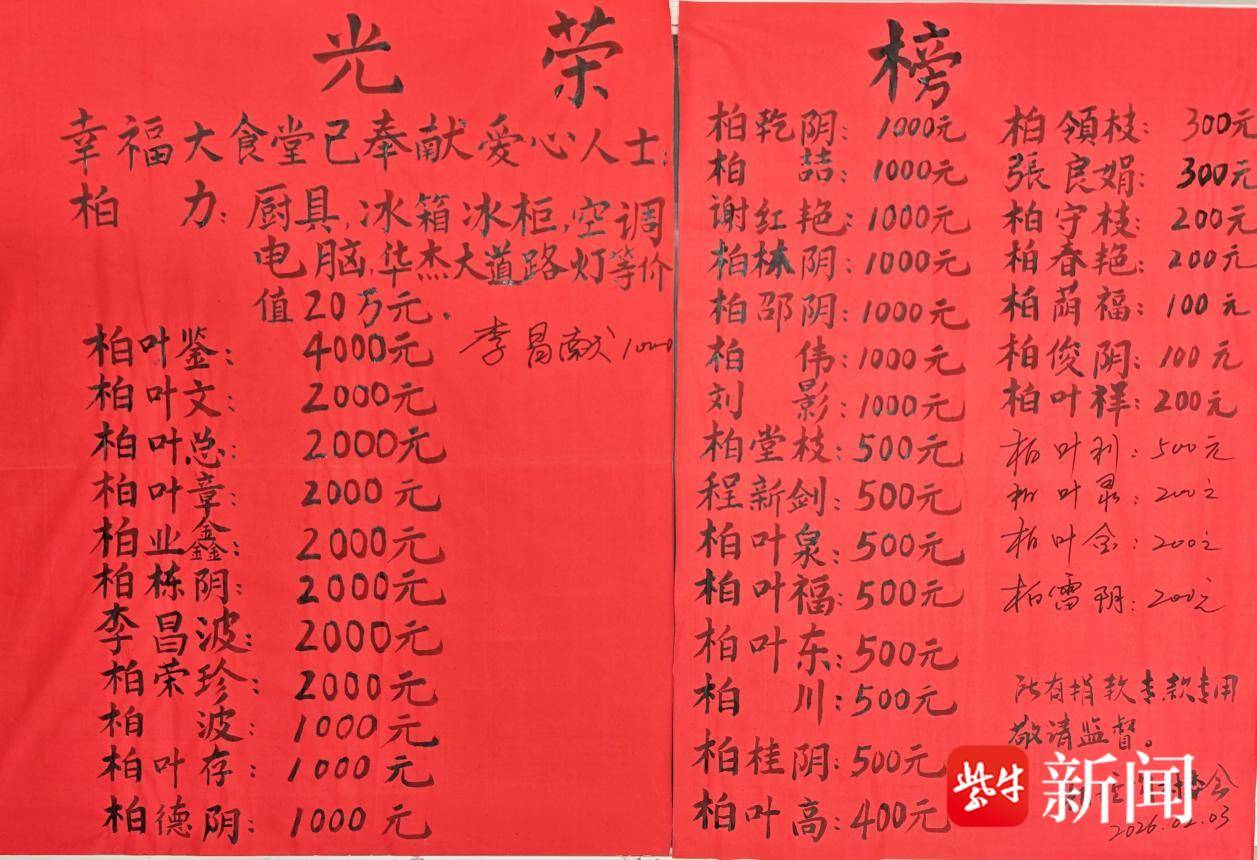 光荣榜
幸福大食堂已奉献爱心人士:
柏力:厨具,冰箱冰柜,空调
电脑,华杰大道路灯等价
值20万元.
柏叶鉴:4000元
李昌献1000
柏叶文:2000元
柏叶总:2000元
柏叶章:2000元
柏业鑫:2000元
柏栋阴:2000元
李昌波:2000元
柏荣珍:2000元
柏波:1000元
柏叶存:1000元
柏德阴:1000元
柏乾阴:1000元
柏喆:1000元
谢红艳:1000元
柏林阴:1000元
柏邵阴:1000元
柏伟:1000元
刘影:1000元
柏堂枝:500元
程新剑:500元
柏叶泉:500元
柏叶福:500元
柏叶东:500元
柏川:500元
柏桂阴:500元
柏叶高:400元
柏領枝:300元
張良娟:300元
柏守枝:200元
柏春艳:200元
柏荫福:100元
柏俊阴:100元
柏叶祥:200元
柏叶利:500元
柏叶:200元
柏叶:200元
柏雷阴:200元
所有捐款专款专用
敬请监督。
会
2026.02.03
紫牛新闻